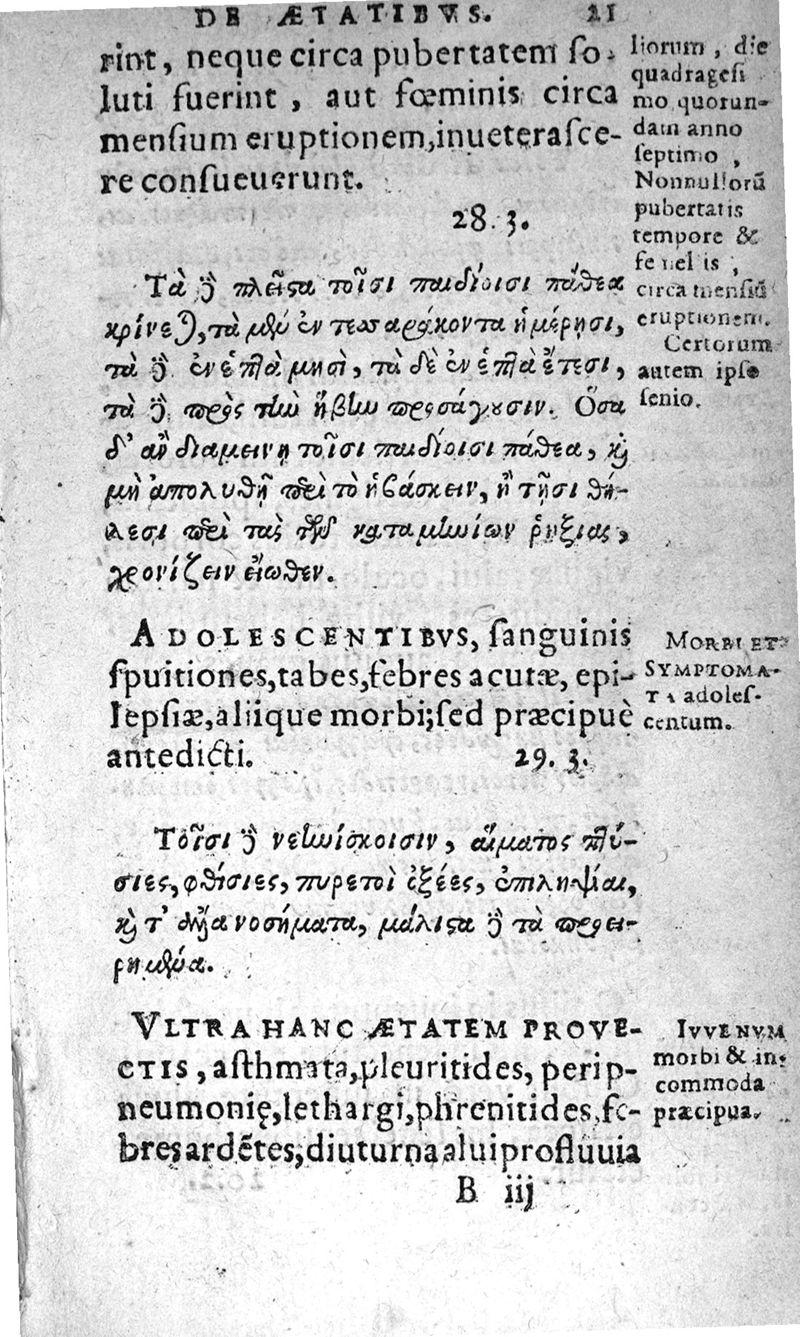 DE ÆTATIBVS. 21
rint, neque circa pubertatem ſo-
luti fuerint, aut fœminis circa
menſium eruptionem, inueteraſce-
re conſueuerunt.
28. 3.
Τὰ ἢ πλεῖϛα τοῖσι παιδίοισι πάθεα
κρίνε), τὰ μθὺ ἐν τεσσαράκοντα ἡμέρῃσι,
τὰ ἢ ἐν ἑπτὰ μησὶ, τὰ δὲ ἐν ἑπτὰ ἔτεσι,
τὰ ἢ πρὸς τὼ ἥβίω προσάγουσιν. Ὅσα
δ' ἂν διαμείνῃ τοῖσι παιδίοισι πάθεα, κὶ
μὴ ἀπολυθῇ περὶ τὸ ἡβάσκειν, ἢ τῇσι θή-
λεσι περὶ τὰς τῶν καταμηνίων ῥήξιας,
χρονίζειν εἴωθεν.
ADOLESCENTIBVS, ſanguinis
ſpuitiones, tabes, febres acutæ, epi-
lepſiæ, aliique morbi; ſed præcipuè
antedicti. 29. 3.
Τοῖσι ἢ νεηνίσκοισιν, αἵματος πτύ-
σιες, φθίσιες, πυρετοὶ ὀξέες, ἐπιληψίαι,
κὶ τ' ἄλλα νοσήματα, μάλιϛα ἢ τὰ προει-
ρημένα.
VLTRA HANC ÆTATEM PROVE-
CTIS, aſthmata, pleuritides, perip-
neumonię, lethargi, phrenitides, fe-
bres ardẽtes, diuturna alui profluuia
B iij
liorum, die
quadrageſi
mo quorun-
dam anno
ſeptimo,
Nonnullorũ
pubertatis
tempore &
fenellis,
circa menſiũ
eruptionem.
Certorum
autem ipſo
ſenio.
MORBI ET
SYMPTOMA-
TA adoleſ-
centum.
IVVENVM
morbi & in-
commoda
præcipua.